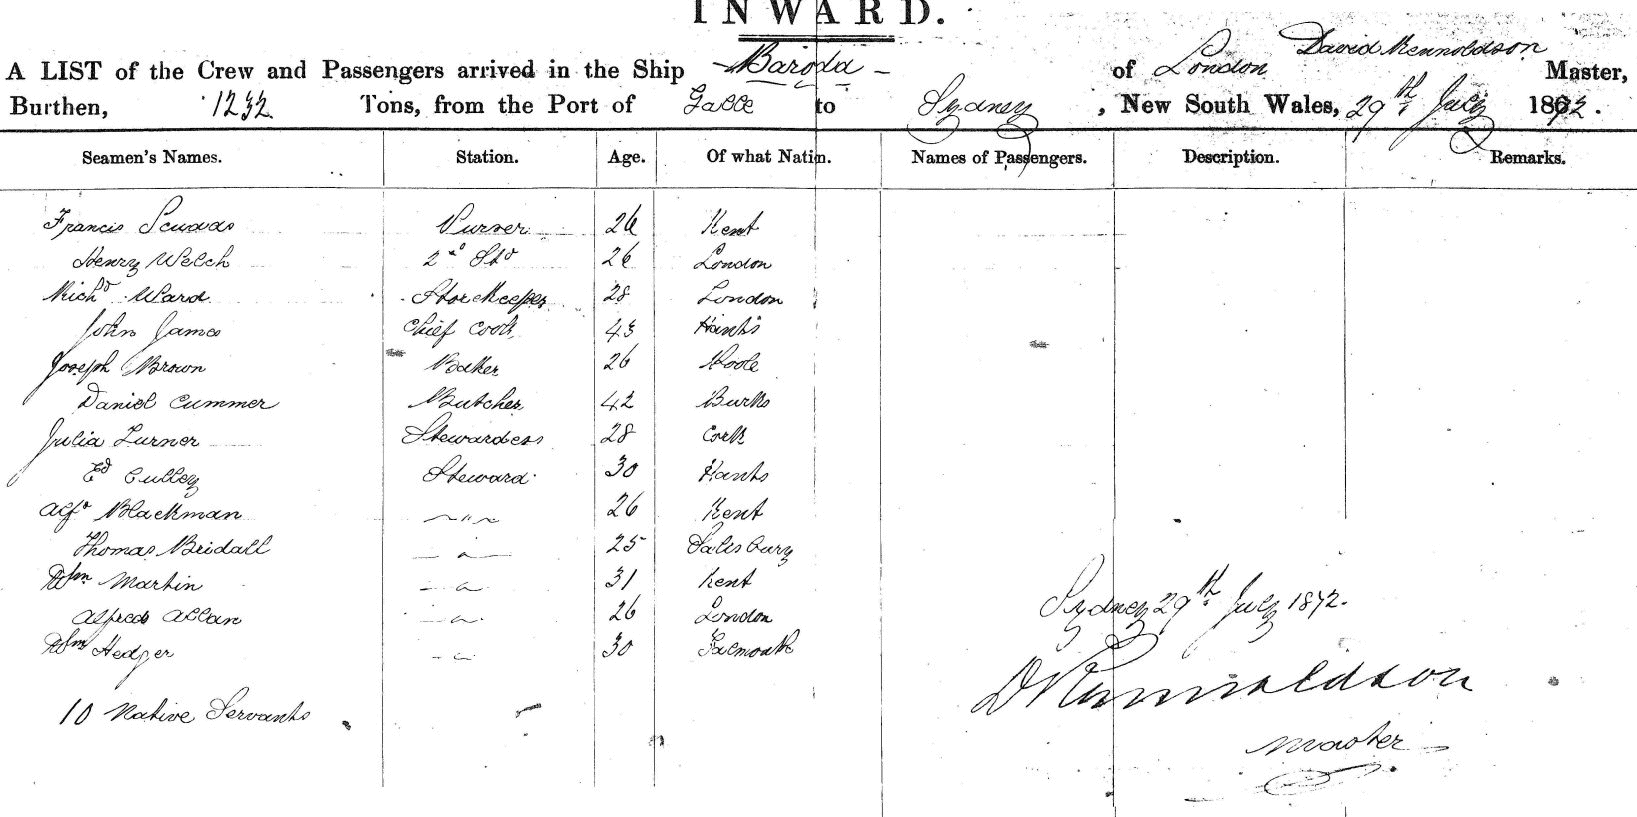 INWARD.
David Rennoldson
A LIST of the Crew and Passengers arrived in the Ship Baroda of London Master,
Burthen, 1232 Tons, from the Port of Galle to Sydney, New South Wales, 29th July 1872.
Seamen's Names. Station. Age. Of what Natin. Names of Passengers. Description. Remarks.
Francis Purser 26 Kent
Henry Welch 2nd Std 26 London
Richd Ward Storekeeper 28 London
John James Chief Cook 43 Hants
Joseph Brown Baker 26 Poole
Daniel Cummer Butcher 42 Burks
Julia Turner Stewardess 28 Cork
Ed Culley Steward 30 Hants
Alfd Blackman — " — 26 Kent
Thomas Bridall — " — 25 Salisbury
Wm Martin — " — 31 Kent
Alfred Allan — " — 26 London
Wm Hedger — " — 30 Falmouth
10 Native Servants
Sydney 29th July 1872.
D Rennoldson
Master